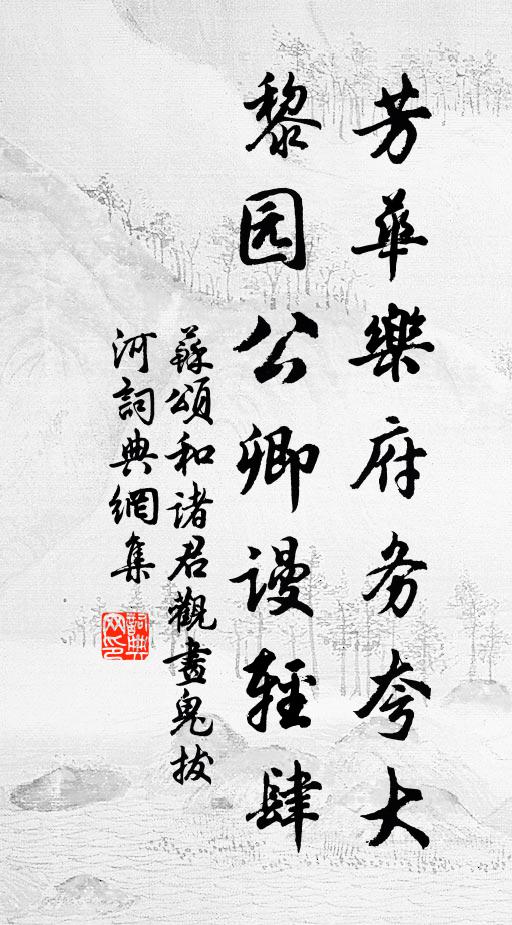 芳華樂府务夸大
黎园公卿谩輕肆
蘇頌和诸君觀畫鬼拔
河詞典網集
詞典网印